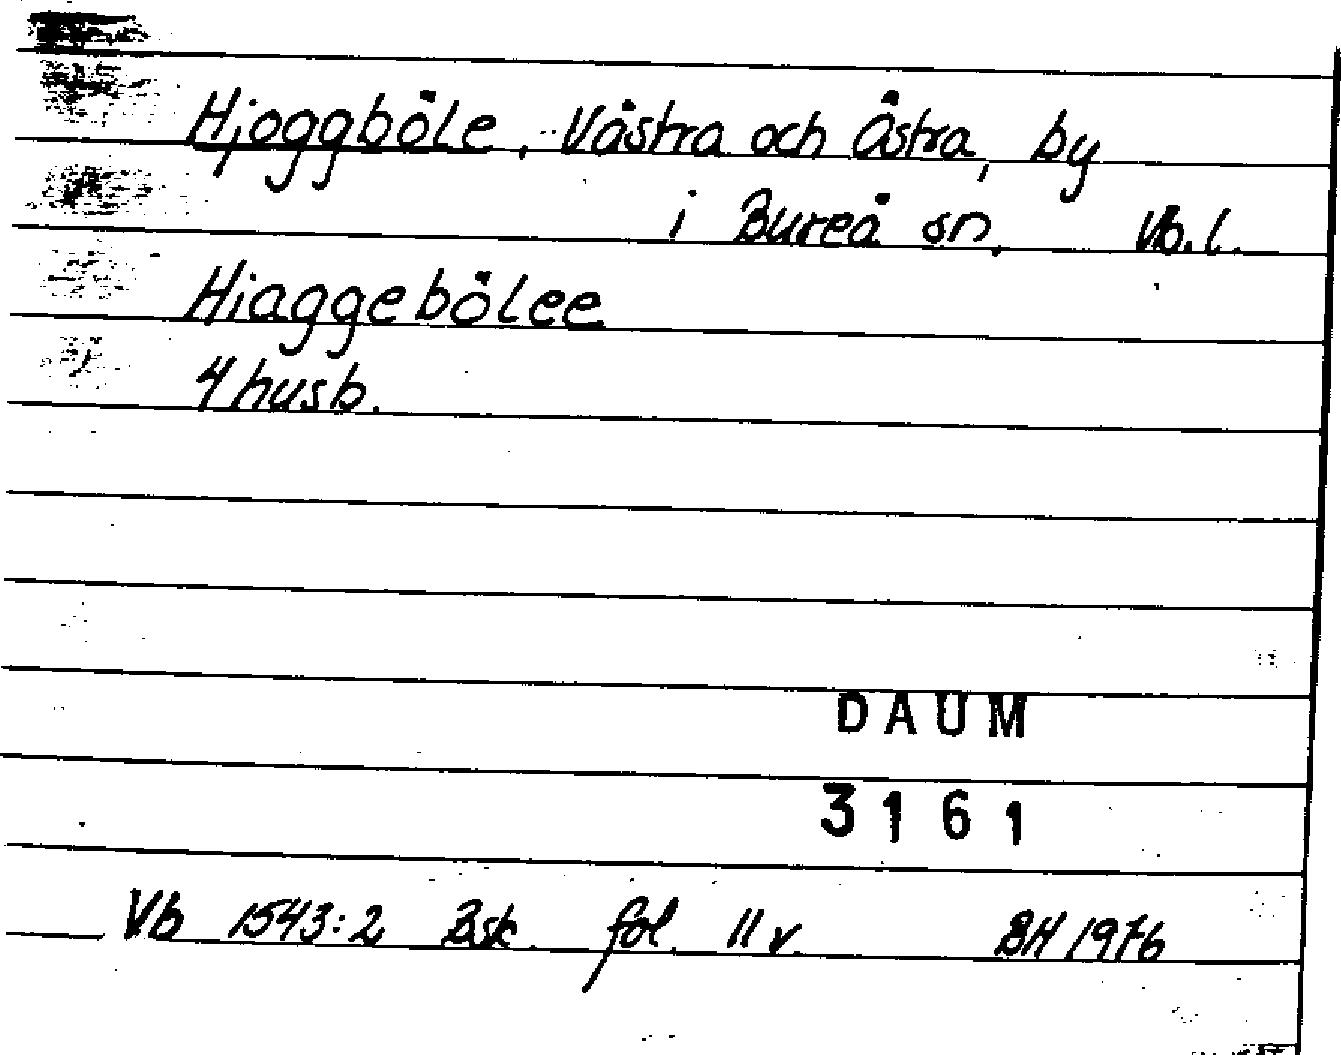 Hjoggböle, Västra och Östra, by
i Bureå sn, Vb. l.
Hiaggebölee
4 husb.
DAUM
3161
Vb 1543:2 Bsk. fol. 11 v. BH 1976